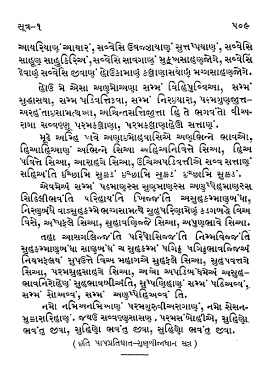 સૂત્ર-૧ ૫૦૯
આયરિયાણં આયારં, સવ્વેસિં ઉવજ્ઝાયાણં સુત્તપ્પયાણં, સવ્વેસિં
સાહૂણં સાહુકિરિઅં, સવ્વેસિં સાવગાણં મુક્ખસાહણજોગે, સવ્વેસિં
દેવાણં સવ્વેસિં જીવાણં હોઉકામાણં કલ્લાણાસયાણં મગ્ગસાહણજોગે.
હોઉ મે એસા અણુમોઅણા સમ્મં વિહિપુવ્વિઆ, સમ્મં
સુદ્ધાસયા, સમ્મં પડિવત્તિરૂવા, સમ્મં નિરઇયારા, પરમગુણજુત્ત-
અરહંતાઇસામત્થઓ, અચિંતસત્તિજુત્તા હિ તે ભગવંતો વીઅ-
રાગા સવ્વણ્ણૂ પરમકલ્લાણા, પરમકલ્લાણહેઊ સત્તાણં.
મૂઢે અમ્હિ પાવે અણાઇમોહવાસિએ અણભિન્ને ભાવઓ,
હિઆહિઆણં અભિન્ને સિઆ અહિઅનિવિત્તે સિઆ, હિઅ
પવિત્તે સિઆ, આરાહગે સિઆ, ઉચિઅપડિવત્તીએ સવ્વ સત્તાણં
સહિઅંતિ ઇચ્છામિ સુક્કડં ઇચ્છામિ સુક્કડં ઇચ્છામિ સુક્કડં.
એવમેઅં સમ્મં પઢમાણસ્સ સુણમાણસ્સ અણુપ્પેહમાણસ્સ
સિઢિલીભવંતિ પરિહાયંતિ ખિજ્જંતિ અસુહકમ્માણુબંધા,
નિરણુબંધે વાઽસુહકમ્મે ભગ્ગસામત્થે સુહપરિણામેણં કડગબદ્ધે વિઅ
વિસે, અપ્પફલે સિઆ, સુહાવણિજ્જે સિઆ, અપુણભાવે સિઆ.
તહા આસગલિજ્જંતિ પરિપોસિજ્જંતિ નિમ્મવિજ્જંતિ
સુહકમ્માણુબંધા સાણુબંધં ચ સુહકમ્મં પગિટ્ઠં પગિટ્ઠભાવજ્જિઅં
નિયમફલયં સુપઉત્તે વિઅ મહાગએ સુહફલે સિઆ, સુહપવત્તગે
સિઆ, પરમસુહસાહગે સિઆ, અઓ અપડિબંધમેઅં અસુહ-
ભાવનિરોહેણં સુહભાવબીઅંતિ, સુપ્પણિહાણં સમ્મં પઢિઅવ્વં,
સમ્મં સોઅવ્વં, સમ્મં અણુપ્પેહિઅવ્વં તિ.
નમો નમિઅનમિઆણં પરમગુરુવીઅરાગાણં, નમો સેસન-
મુક્કારારિહાણં. જયઉ સવ્વણ્ણુસાસણં, પરમસંબોહીએ, સુહિણો
ભવંતુ જીવા, સુહિણો ભવંતુ જીવા, સુહિણો ભવંતુ જીવા.
(ઇતિ પાપપ્રતિઘાત-ગુણબીજાધાન સૂત્ર)